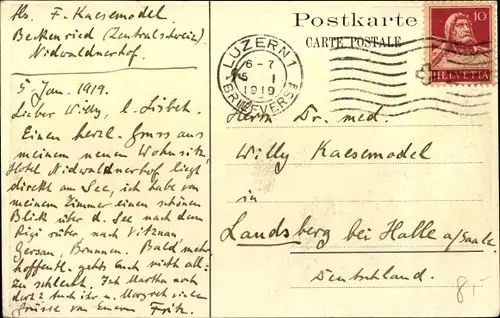 Abs. F. Kaesemodel
Beckenried (Zentralschweiz)
Nidwaldnerhof.
5 Jan. 1919.
Lieber Willy, l. Lisbeth.
Einen herzl. Gruss aus
meinem neuen Wohnsitz,
Hotel Nidwaldnerhof liegt
direkt am See, ich habe von
meinem Zimmer einen schönen
Blick über d. See nach dem
Rigi rüber nach Vitznau
Gersau, Brunnen. Bald mehr,
hoffentl. gehts Euch nicht all-
zu schlecht. Ist Martha noch
dort? Euch ihr u. Margret vielen
Grüsse von Eurem Fritz.
Postkarte
CARTE POSTALE
LUZERN 1
6-7
1919
BRIEFVERSD
10
HELVETIA
Herrn Dr. med.
Willy Kaesemodel
in
Landsberg bei Halle a/Saale.
Deutschland.
8,-